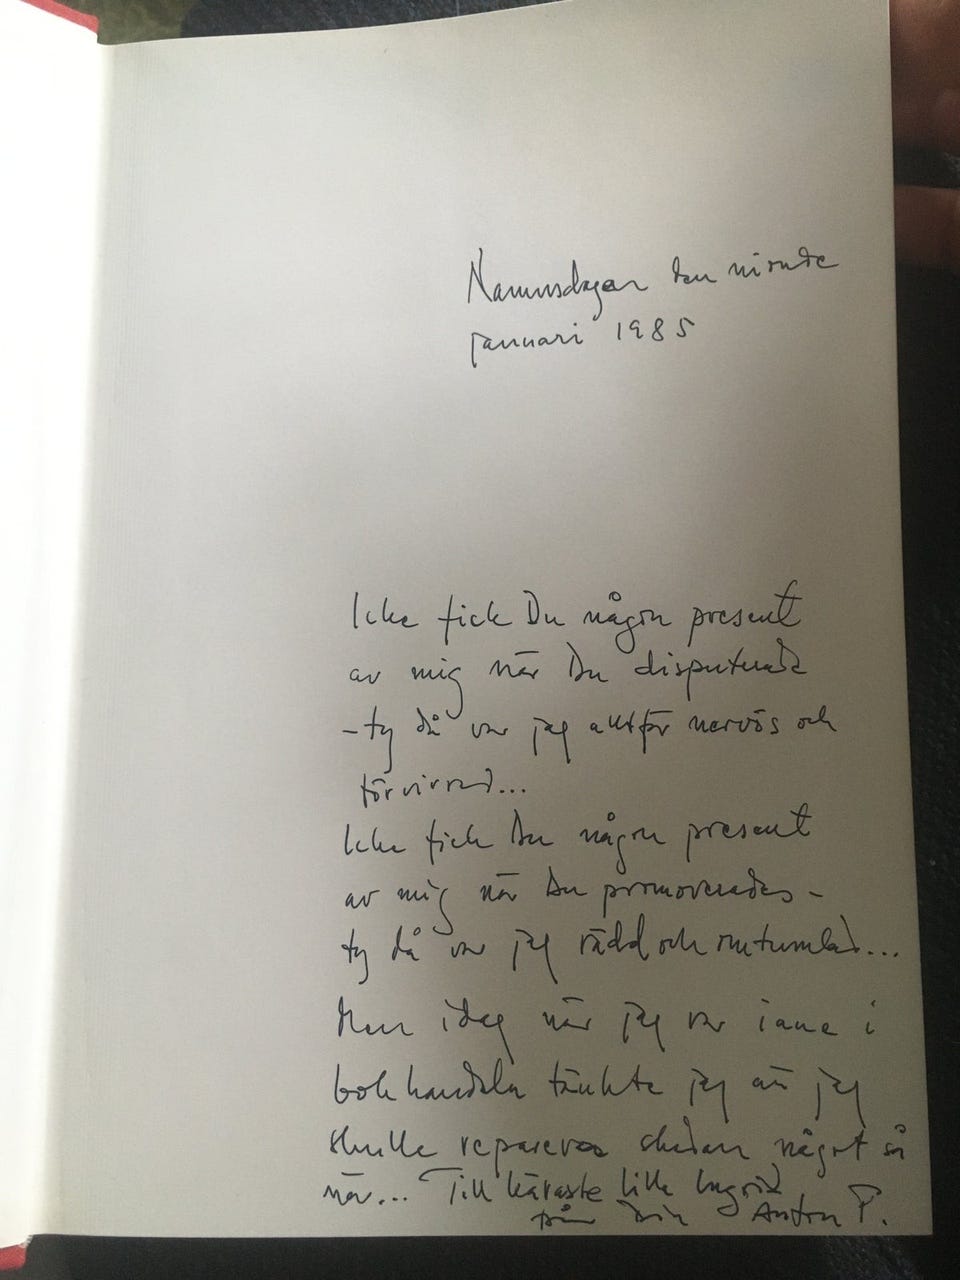 Namnsdagen den nionde
januari 1985
Icke fick Du någon present
av mig när Du disputerade
- ty då var jag alltför nervös och
förvirrad...
Icke fick Du någon present
av mig när Du promoverades -
ty då var jag rädd och omtumlad...
Men idag när jag var inne i
bokhandeln tänkte jag att jag
skulle reparera skadan något så
när... Till käraste lilla Ingrid
från Din Anton P.